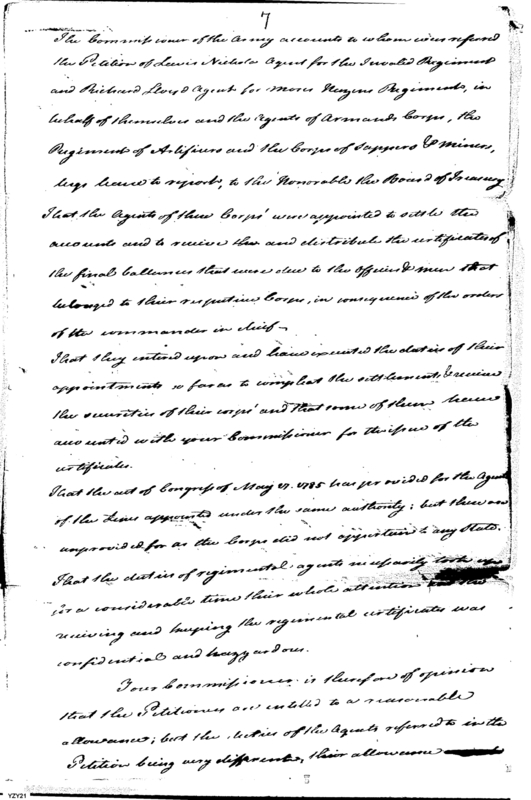 7
The Commissioner of the Army accounts to whom was referred
the Petition of Lewis Nichola Agent for the Invalid Regiment
and Richard Lloyd Agent for Moses Hazens Regiment, in
behalf of themselves and the Agents of Armands Corps, the
Regiment of Artificers and the Corps of Sappers & Miners,
begs leave to report, to the Honorable the Board of Treasury
That the Agents of these Corps' were appointed to settle the
accounts and to receive the and distribute the certificates of
the final ballances that were due to the Officers & men that
belonged to their respective Corps, in consequence of the orders
of the commander in chief—
That they entered upon and have executed the duties of their
appointments so far as to compleat the settlement, & receive
the securities of their corps' and that some of them have
accounted with your Commissioner for the issue of the
certificates.
That the act of Congress of May 1785 has provided for the Agents
of the Lines appointed under the same authority; but these are
unprovided for as the Corps did not appertain to any State.
That the duties of regimental agents necessarily took up
for a considerable time their whole attention the
receiving and keeping the regimental certificates was
confidential and hazzardous.
Your Commissioner is therefore of opinion
that the Petitioners are intitled to a reasonable
allowance; but the duties of the Agents referred to in the
Petition being very different, their allowance
YZY21